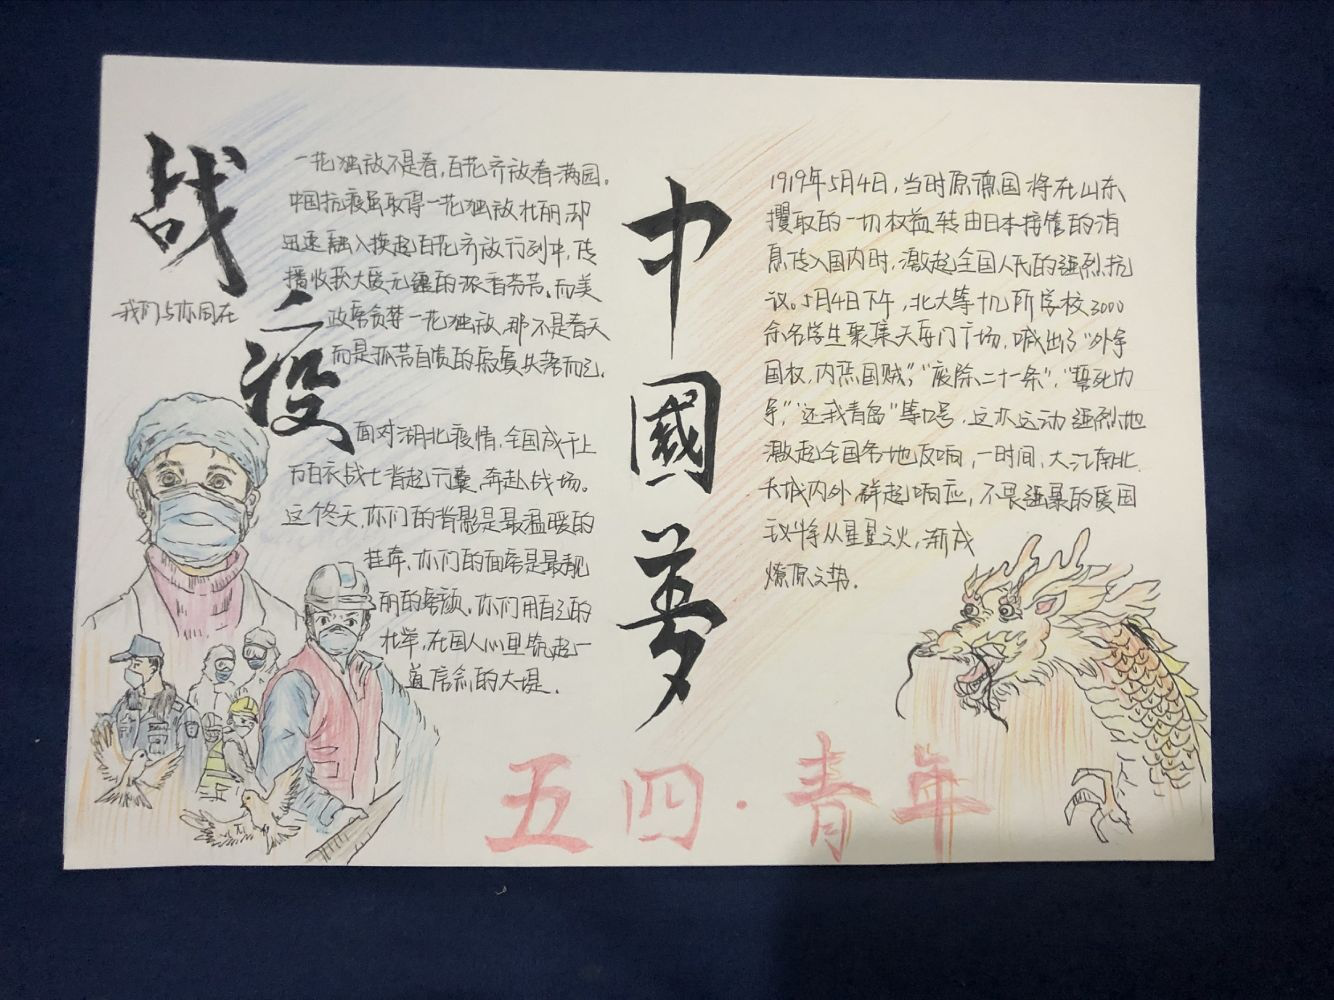 战
役
我们与你同在
一花独放不是春，百花齐放春满园。
中国抗疫虽取得一花独放壮丽却
迅速融入换起百花齐放行列中，传
播收获大爱无疆的浓香芬芳。而美
政客贪婪一花独放，那不是春天
而是孤芳自赏的寂寞失落而已。
面对湖北疫情，全国成千上
万白衣战士背起行囊，奔赴战场。
这个冬天，你们的背影是最温暖的
挂牵，你们的面容是最靓
丽的容颜。你们用自己的
壮举，在国人心里筑起一
道信念的大堤．
中國梦
1919年5月4日，当时原德国将在山东
攫取的一切权益转由日本接管的消
息传入国内时，激起全国人民的强烈抗
议。5月4日下午，北大等十几所学校3000
余名学生聚集天安门广场，喊出了“外争
国权，内惩国贼”，“废除二十一条”，“誓死力
争”，“还我青岛”等口号，这次运动强烈地
激起全国各地反响，一时间，大江南北
长城内外，群起响应，不畏强暴的爱国
将从星星之火，渐成
燎原之势．
五四·青年